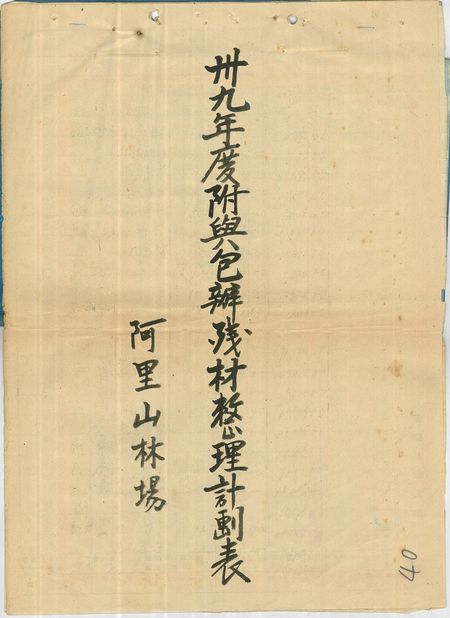 卅九年度附與包辦殘材整理計劃表
阿里山林場
40